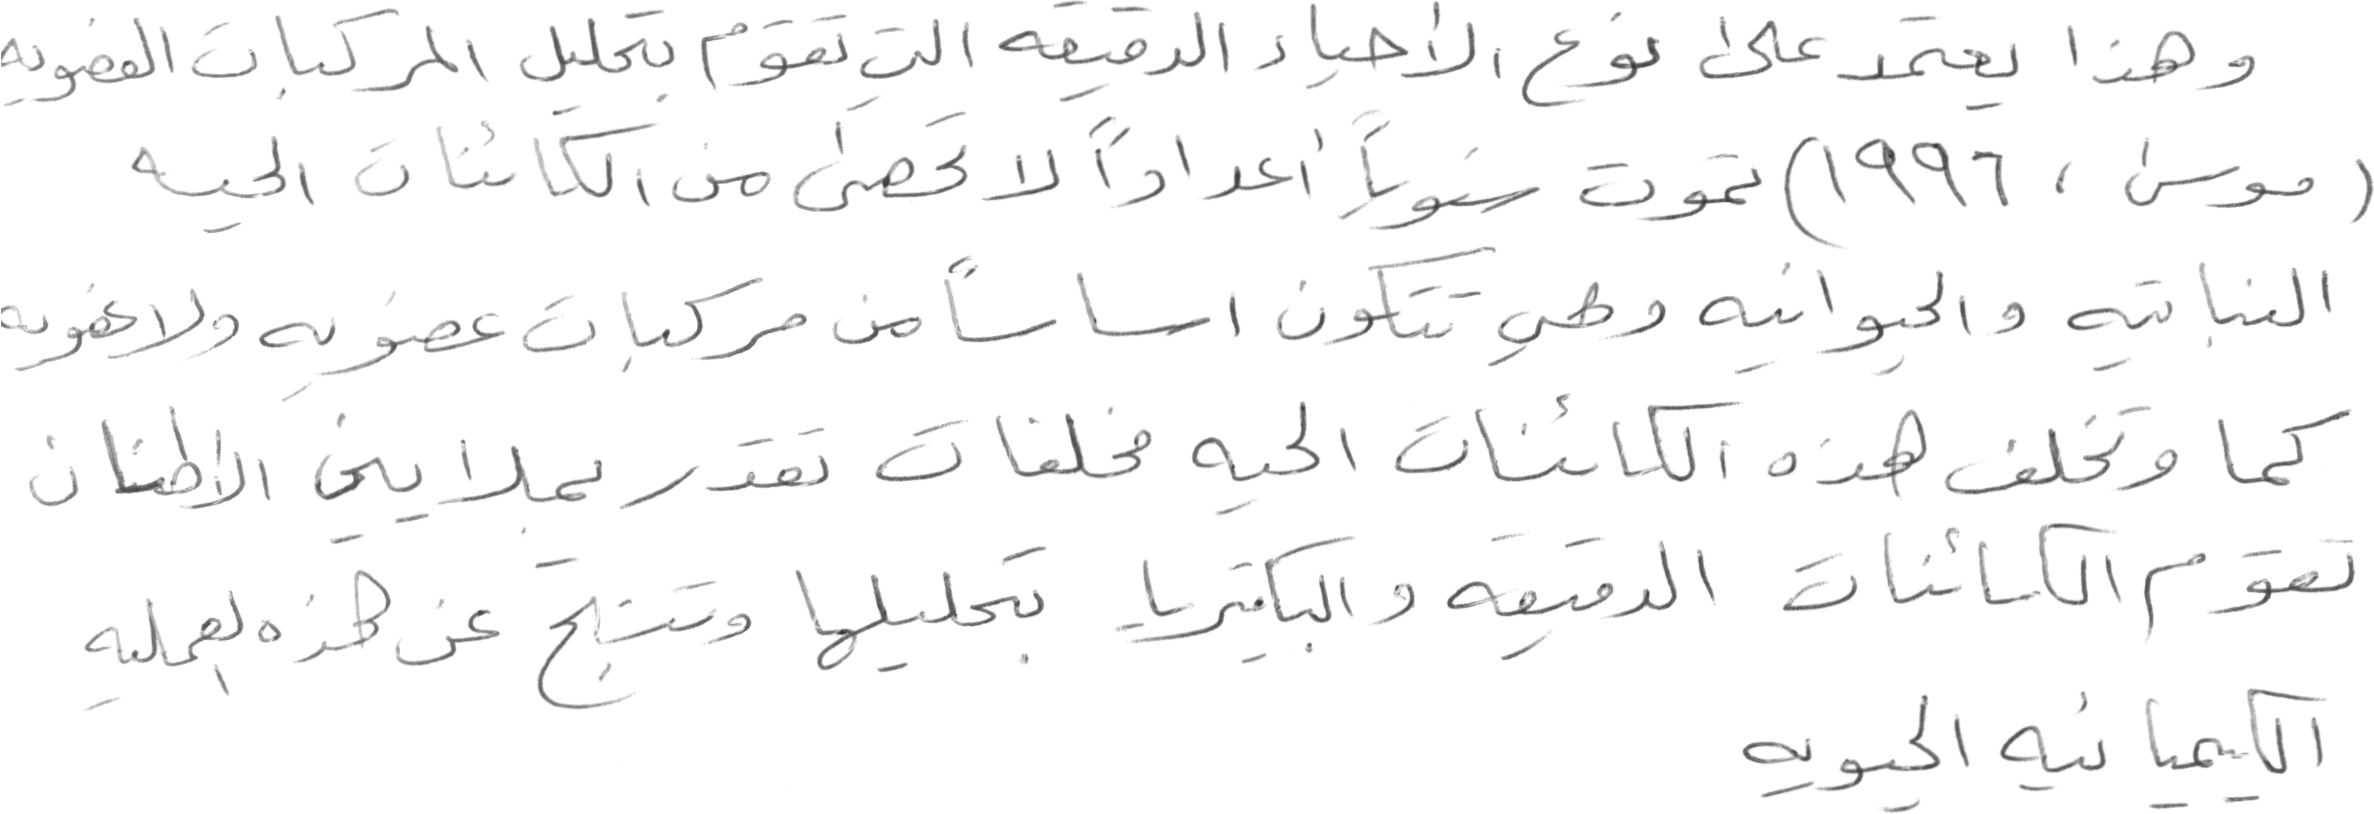 وهذا يعتمد على نوع الأحياء الدقيقه التي تقوم بتحليل المركبات العضويه
(موسى ، ١٩٩٦) تموت سنوياً أعداداً لا تحصى من الكائنات الحيه
النباتيه والحيوانيه وهي تتكون اساساً من مركبات عضويه ولاعضويه
كما وتخلف هذه الكائنات الحيه مخلفات تقدر بملايين الأطنان
تقوم الكائنات الدقيقه والبكتريا بتحليلها وتنتج عن هذه العمليه
الكيميائيه الحيويه